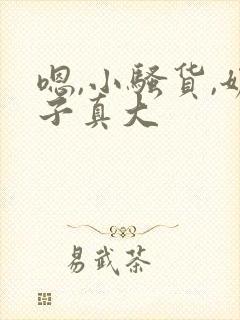 嗯,小骚货,奶
子真大
易武茶